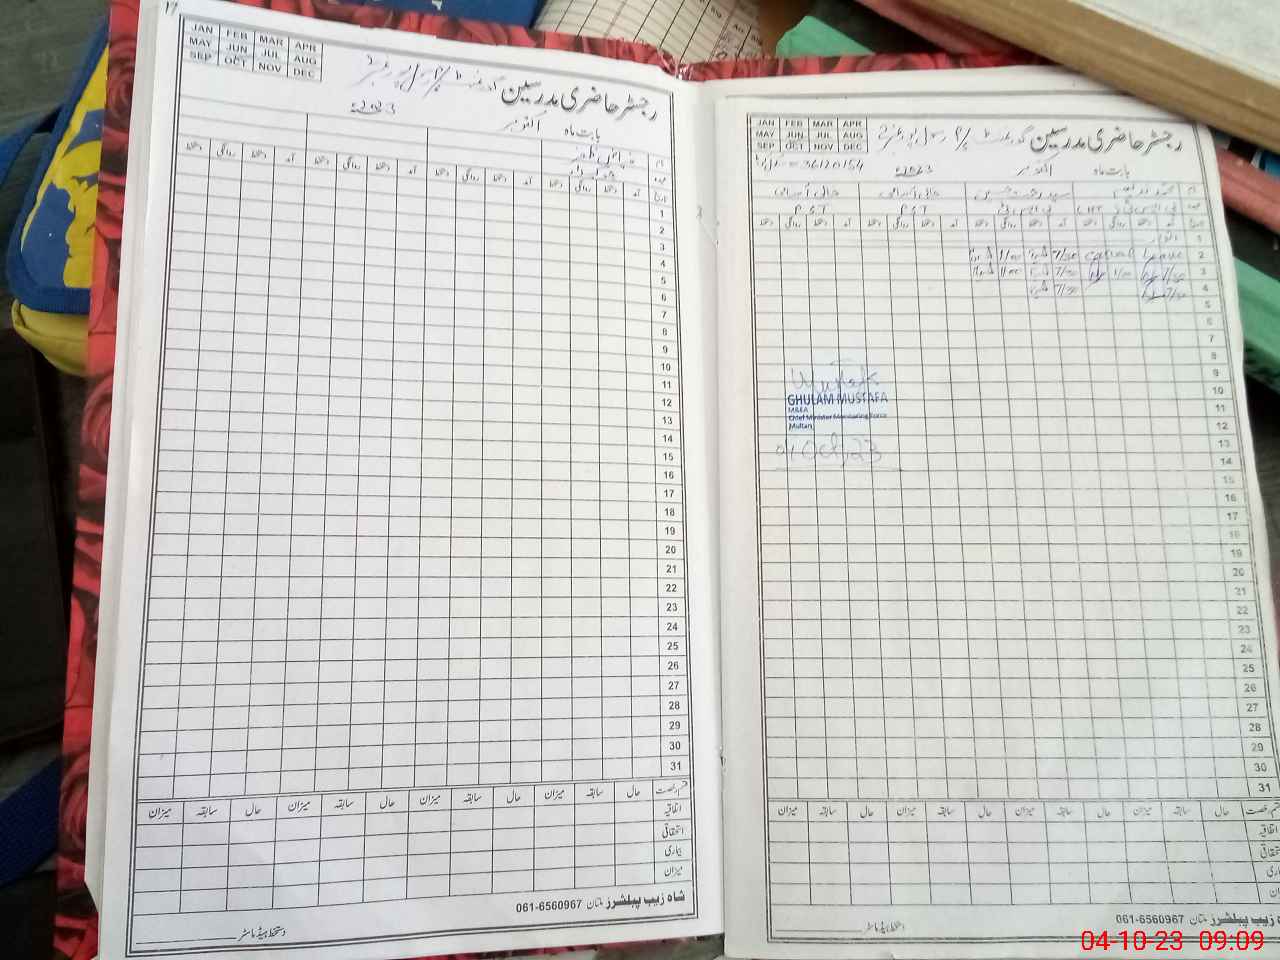 17
JAN FEB MAR APR
MAY JUN JUL AUG
SEP OCT NOV DEC
رجسٹر حاضری مدرسین گورنمنٹ
بابت ماہ اکتوبر 2023ء
نام
عہدہ
تاریخ آمد دستخط روانگی دستخط آمد دستخط روانگی دستخط آمد دستخط روانگی دستخط آمد دستخط روانگی دستخط
1
2
3
4
5
6
7
8
9
10
11
12
13
14
15
16
17
18
19
20
21
22
23
24
25
26
27
28
29
30
31
قسم رخصت حال سابقہ میزان حال سابقہ میزان حال سابقہ میزان حال سابقہ میزان
اتفاقیہ
استحقاقی
بیماری
میزان
شاہ زیب پبلشرز ملتان 061-6560967
دستخط ہیڈ ماسٹر
JAN FEB MAR APR
MAY JUN JUL AUG
SEP OCT NOV DEC
رجسٹر حاضری مدرسین گورنمنٹ
بابت ماہ اکتوبر 2023ء 36120154
نام خالی آسامی خالی آسامی
عہدہ PST PST
تاریخ آمد دستخط روانگی دستخط آمد دستخط روانگی دستخط آمد دستخط روانگی دستخط آمد دستخط روانگی دستخط
1 اتوار
2 Casual Leave 7/30 1/00
3 7/30 1/00 7/30 1/00
4 7/30 7/30
5
6
7
8
9
10
11
12
13
14
15
16
17
18
19
20
21
22
23
24
25
26
27
28
29
30
31
GHULAM MUSTAFA
MEA
Chief Minister Monitoring Force
Multan
Oct, 23
قسم رخصت حال سابقہ میزان حال سابقہ میزان حال سابقہ میزان حال سابقہ میزان
اتفاقیہ
استحقاقی
شاہ زیب پبلشرز ملتان 061-6560967
دستخط ہیڈ ماسٹر
04-10-23 09:09